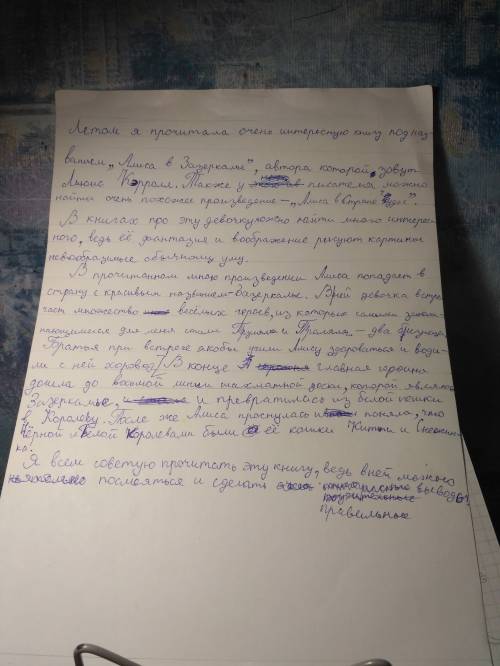 Летом я прочитала очень интересную книгу под наз-
ванием „Алиса в Зазеркалье", автора которой зовут
Льюис Кэрролл. Также у писателя можно
найти очень похожее произведение – „Алиса в Стране Чудес".
В книгах про эту девочку можно найти много интерес-
ного, ведь её фантазия и воображение рисуют картинки
невообразимые обычному уму.
В прочитанном мною произведении Алиса попадает в
страну с красивым названием - Зазеркалье. В ней девочка встре-
чает множество весёлых героев, из которых самыми запом-
нающимися для меня стали Труляля и Траляля – два
Братья при встрече якобы учили Алису здороваться и води-
ли с ней хоровод. В конце главная героиня
дошла до восьмой линии шахматной доски, которой являлось
Зазеркалье, и превратилась из белой пешки
в Королеву. После же Алиса проснулась и поняла, что
Чёрной и Белой Королевами были её кошки Китти и Снежин-
ка.
Я всем советую прочитать эту книгу, ведь в ней можно
посмеяться и сделать выводы.
правильные